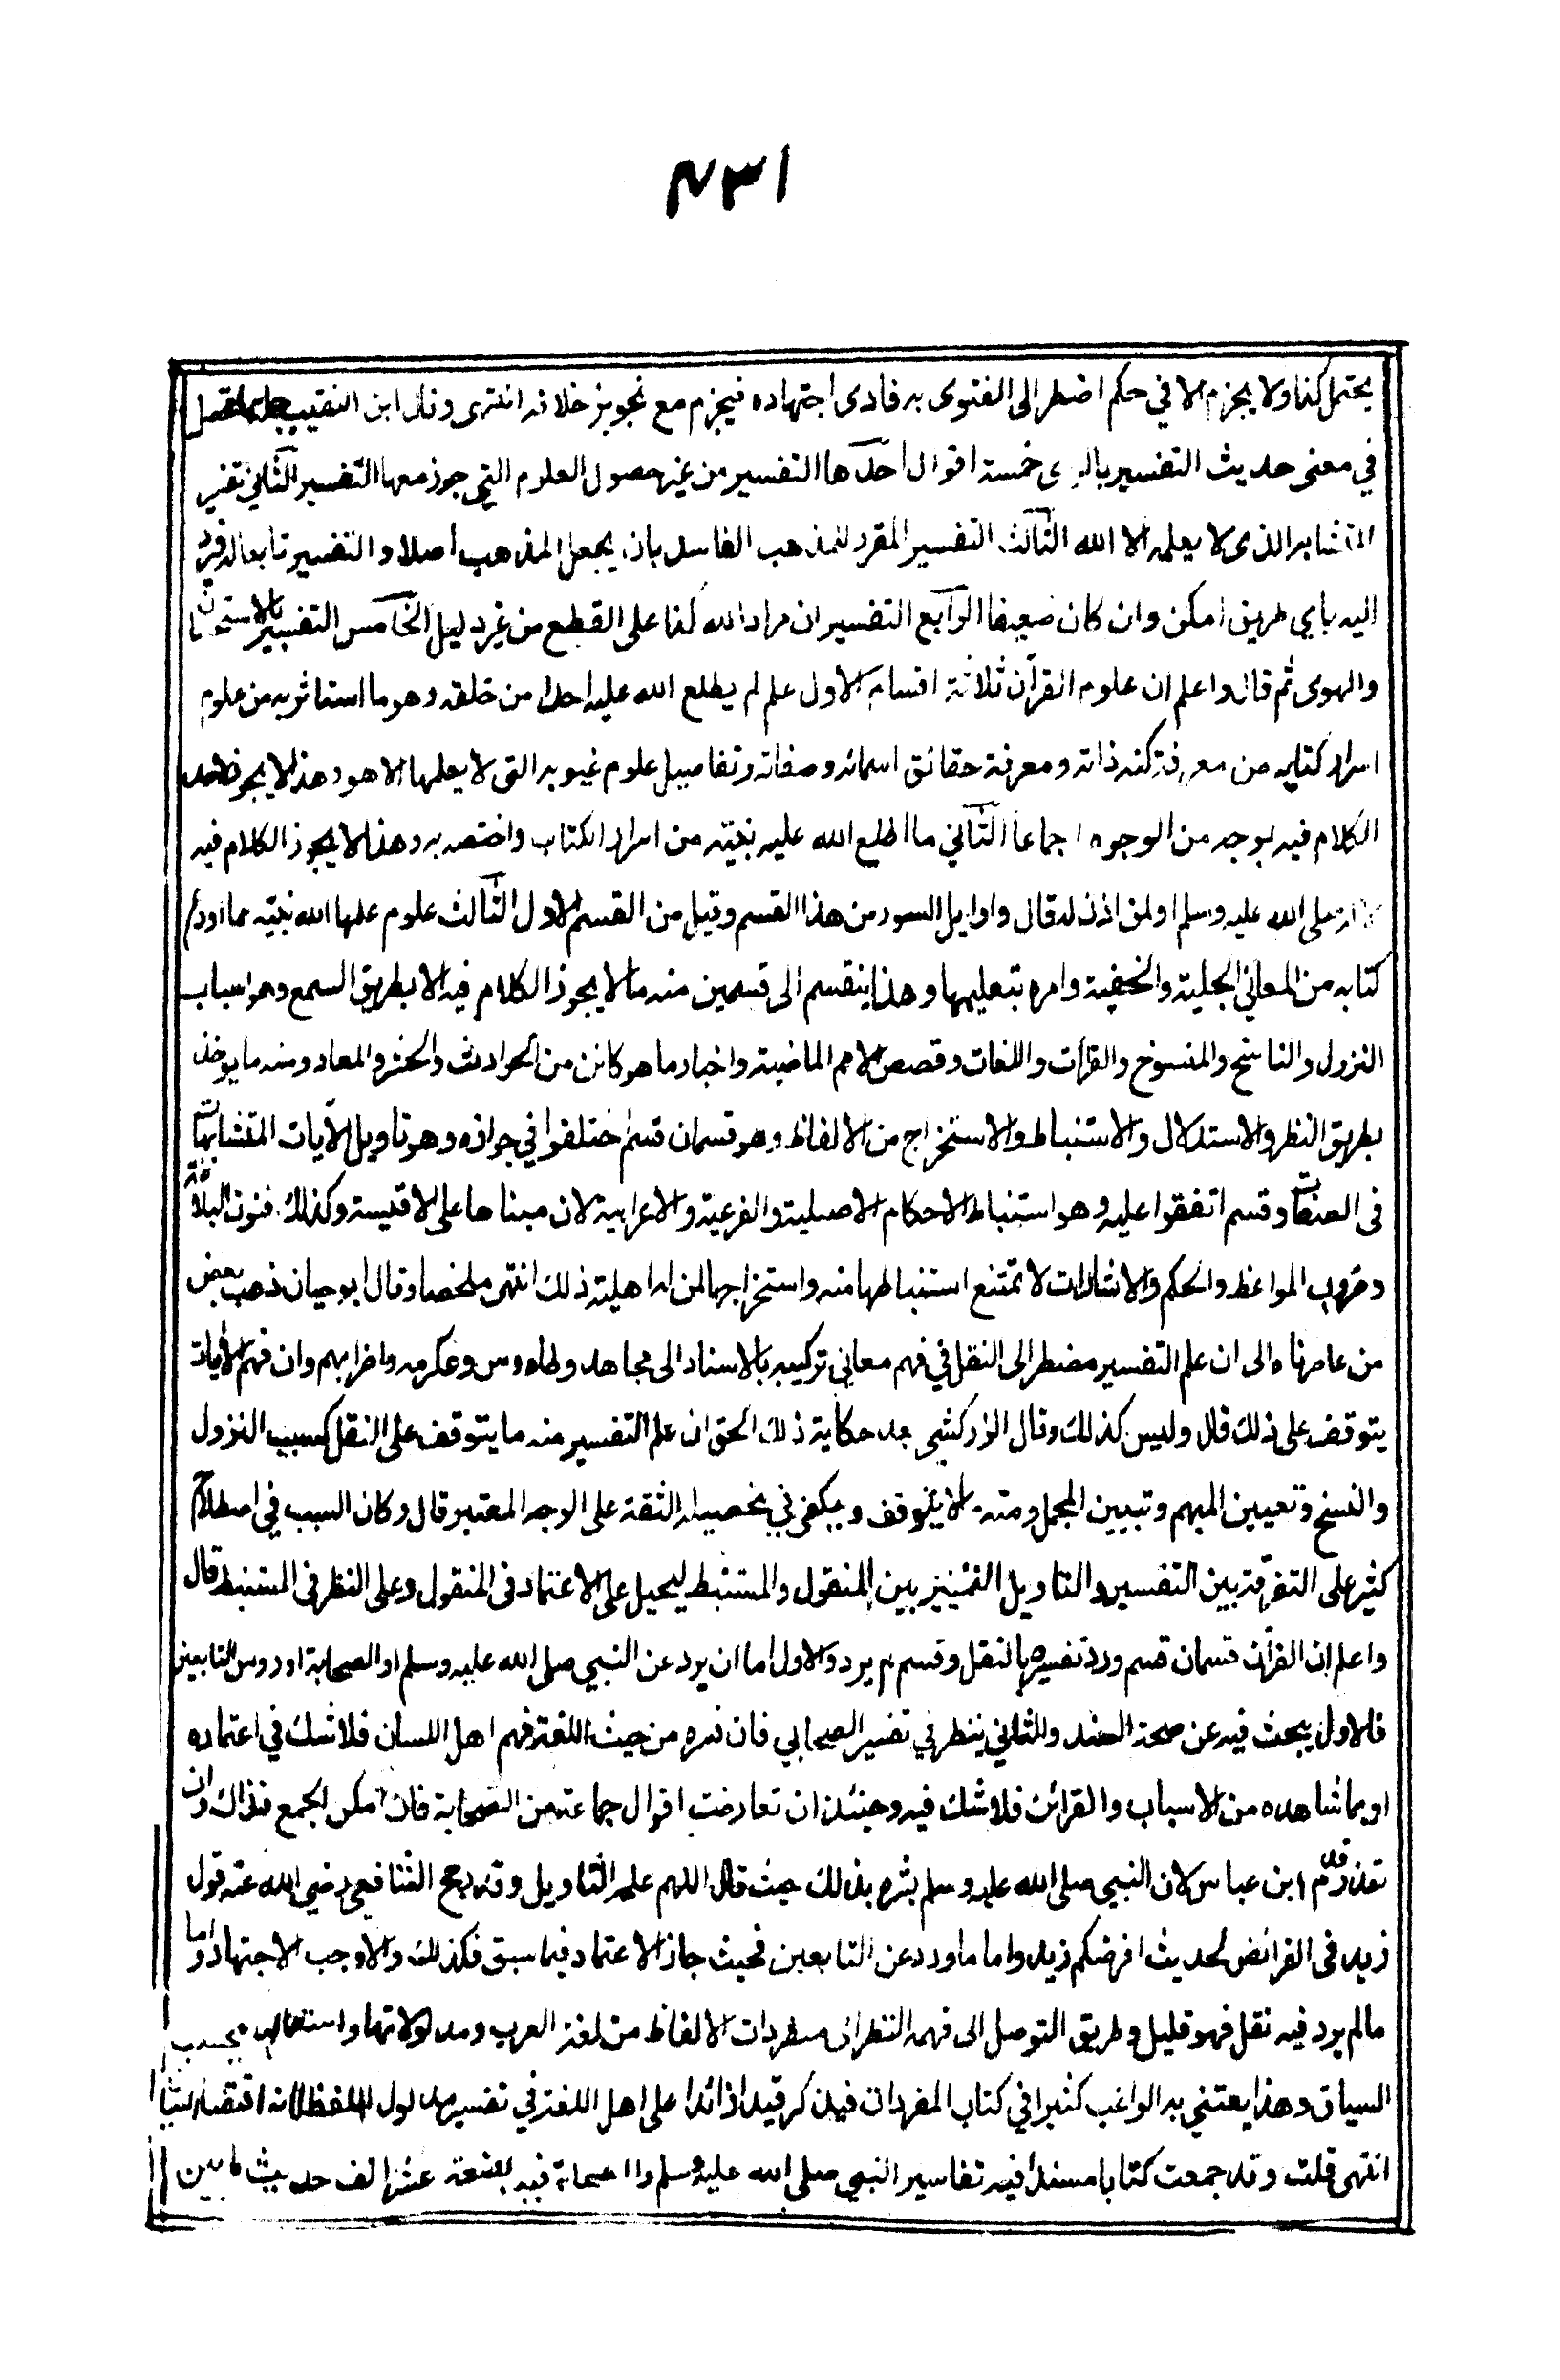 ٤٣١
يحتمل كذا ولا يجزم الا في حكم اضطر الى الفتوى به فادى اجتهاده فيجزم مع تجويز خلافه انتهى وقال ابن النقيب جملة ما تحصل
في معنى حديث التفسير بالرى خمسة اقوال احدها التفسير من غير حصول العلوم التي يجوز معها التفسير الثاني تفسير
المتشابه الذى لا يعلمه الا الله الثالث التفسير المقرر للمذهب الفاسد بان يجعل المذهب اصلا والتفسير تابعا له فيرد
اليه باي طريق امكن وان كان ضعيفا الرابع التفسير ان مراد الله كذا على القطع من غير دليل الخامس التفسير بالاستحسان
والهوى ثم قال واعلم ان علوم القرآن ثلاثة اقسام الاول علم لم يطلع الله عليه احدا من خلقه وهو ما استاثر به من علوم
اسرار كتابه من معرفة كنه ذاته ومعرفة حقائق اسمائه وصفاته وتفاصيل علوم غيوبه التى لا يعلمها الا هو وهذا لا يجوز لاحد
الكلام فيه بوجه من الوجوه اجماعا الثاني ما اطلع الله عليه نبيّه من اسرار الكتاب واختصه به وهذا لا يجوز الكلام فيه
الا له صلى الله عليه وسلم او لمن اذن له قال واوايل السور من هذا القسم وقيل من القسم الاول الثالث علوم علمها الله نبيّه مما اودع
كتابه من المعاني الجلية والخفية وامره بتعليمها وهذا ينقسم الى قسمين منه ما لا يجوز الكلام فيه الا بطريق السمع وهو اسباب
النزول والناسخ والمنسوخ والقرات واللغات وقصص الامم الماضية واخبار ما هو كائن من الحوادث والحشر والمعاد ومنه ما يوخذ
بطريق النظر والاستدلال والاستنباط والاستخراج من الالفاظ وهو قسمان قسم اختلفوا في جوازه وهو تاويل الآيات المتشابهات
فى الصفات وقسم اتفقوا عليه وهو استنباط الاحكام الاصلية والفرعية والاعرابية لان مبناها على الاقيسة وكذلك فنون البلاغة
وضروب المواعظ والحكم والاشارات لا تمتنع استنباطها منه واستخراجها لمن له اهلية ذلك انتهى ملخصا وقال ابو حيان ذهب بعض
من عاصرناه الى ان علم التفسير مضطر الى النقل في فهم معاني تركيبه بالاسناد الى مجاهد وطاووس وعكرمه واضرابهم وان فهم الآيات
يتوقف على ذلك قال وليس كذلك وقال الزركشي بعد حكاية ذلك الحق ان علم التفسير منه ما يتوقف على النقل كسبب النزول
والنسخ وتعيين المبهم وتبيين المجمل ومنه ما لا يتوقف ويكفى في تحصيله الثقة على الوجه المعتبر قال وكان السبب في اصطلاح
كثير على التفرقة بين التفسير والتاويل التمييز بين المنقول والمستنبط ليحيل على الاعتماد فى المنقول وعلى النظر فى المستنبط قال
واعلم ان القرآن قسمان قسم ورد تفسيره بالنقل وقسم لم يرد والاول اما ان يرد عن النبي صلى الله عليه وسلم او الصحابة او روس التابعين
فالاول يبحث فيه عن صحة السند والثاني ينظر في تفسير الصحابي فان فسره من حيث اللغة فهم اهل اللسان فلا شك في اعتماده
او بما شاهده من الاسباب والقرائن فلا شك فيه وحينئذ ان تعارضت اقوال جماعة من الصحابة فان امكن الجمع فذاك وان
تعذر قدم ابن عباس لان النبي صلى الله عليه وسلم بشره بذلك حيث قال اللهم علمه التاويل وقد رجح الشافعي رضي الله عنه قول
زيد فى الفرائض لحديث افرضكم زيد واما ما ورد عن التابعين فحيث جاز الاعتماد فيما سبق فكذلك والا وجب الاجتهاد واما
ما لم يرد فيه نقل فهو قليل وطريق التوصل الى فهمه النظر الى مفردات الالفاظ من لغة العرب ومدلولاتها واستعمالها بحسب
السياق وهذا يعتني به الراغب كثيرا في كتاب المفردات فيذكر قيدا زائدا على اهل اللغة في تفسير مدلول اللفظ لانه اقتضاه السياق
انتهى قلت وقد جمعت كتابا مسندا فيه تفاسير النبي صلى الله عليه وسلم والصحابة فيه بضعة عشر الف حديث ما بين